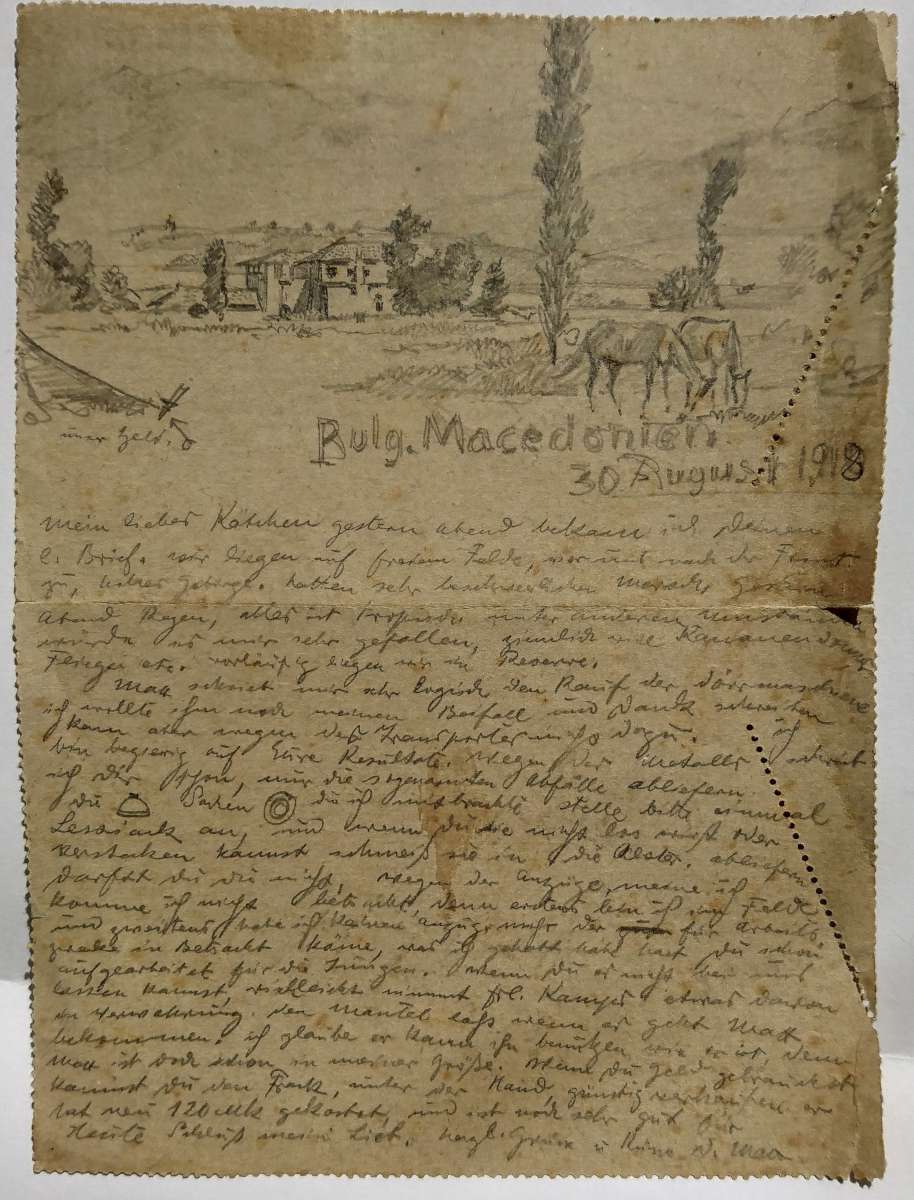 unser Zelt.
Bulg. Macedonien
30 August 1918
Mein liebes Kätchen gestern abend bekam ich Deinen
l. Brief. wir liegen auf freiem Felde, vor uns nach der Front
zu, hohes Gebirge. hatten sehr beschwerlichen Marsch, gestern
Abend Regen, alles ist unter anderen Umständen
würde es mir sehr gefallen, ziemlich viel Kanonendonner
Flieger etc. vorläufig liegen wir in Reserve.
Max schrieb mir sehr den Kauf der Dörrmaschine
ich wollte ihm noch meinen Beifall und Dank schreiben
kann aber wegen des Transportes nicht dazu. ich
bin begierig auf Eure Resultate. wegen der Metalle schrieb
ich Dir schon, nur die sogenannten Abfälle abliefern.
die Sachen die ich mitbrachte stelle bitte einmal
an, und wenn du sie nicht los wirst oder
verstecken kannst schmeiß sie in die Alster. abliefern
darfst du die nicht, wegen der Anzüge meine ich
komme ich nicht in betracht, denn erstens bin ich im Felde
und zweitens habe ich keinen Anzug mehr der für Arbeits
in Betracht käme, was ich gehabt habe hast du schon
aufgearbeitet für die Jungen. wenn du es nicht bei uns
lassen kannst, vielleicht nimmt Frl. etwas davon
in Verwahrung. den Mantel laß wenn es geht Max
bekommen. ich glaube er kann ihn benutzen wie er ist, denn
Max ist doch schon in meiner Größe. Wenn du Geld gebrauchst
kannst du den Frack, unter der Hand, günstig verkaufen er
hat neu 120 Mk gekostet, und ist noch sehr gut für
Heute Schluß mein Lieb, Gruß u Küsse D. Max